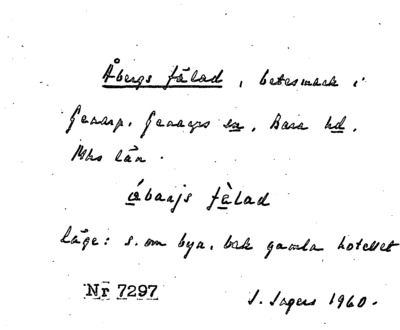 Åbergs fälad, betesmark i
Genarp, Genarps sn, Bara hd.
Mhs län.
åbarjs fèlad
läge: s. om byn, bak gamla hotellet
Nr 7297
I. Ingers 1960.